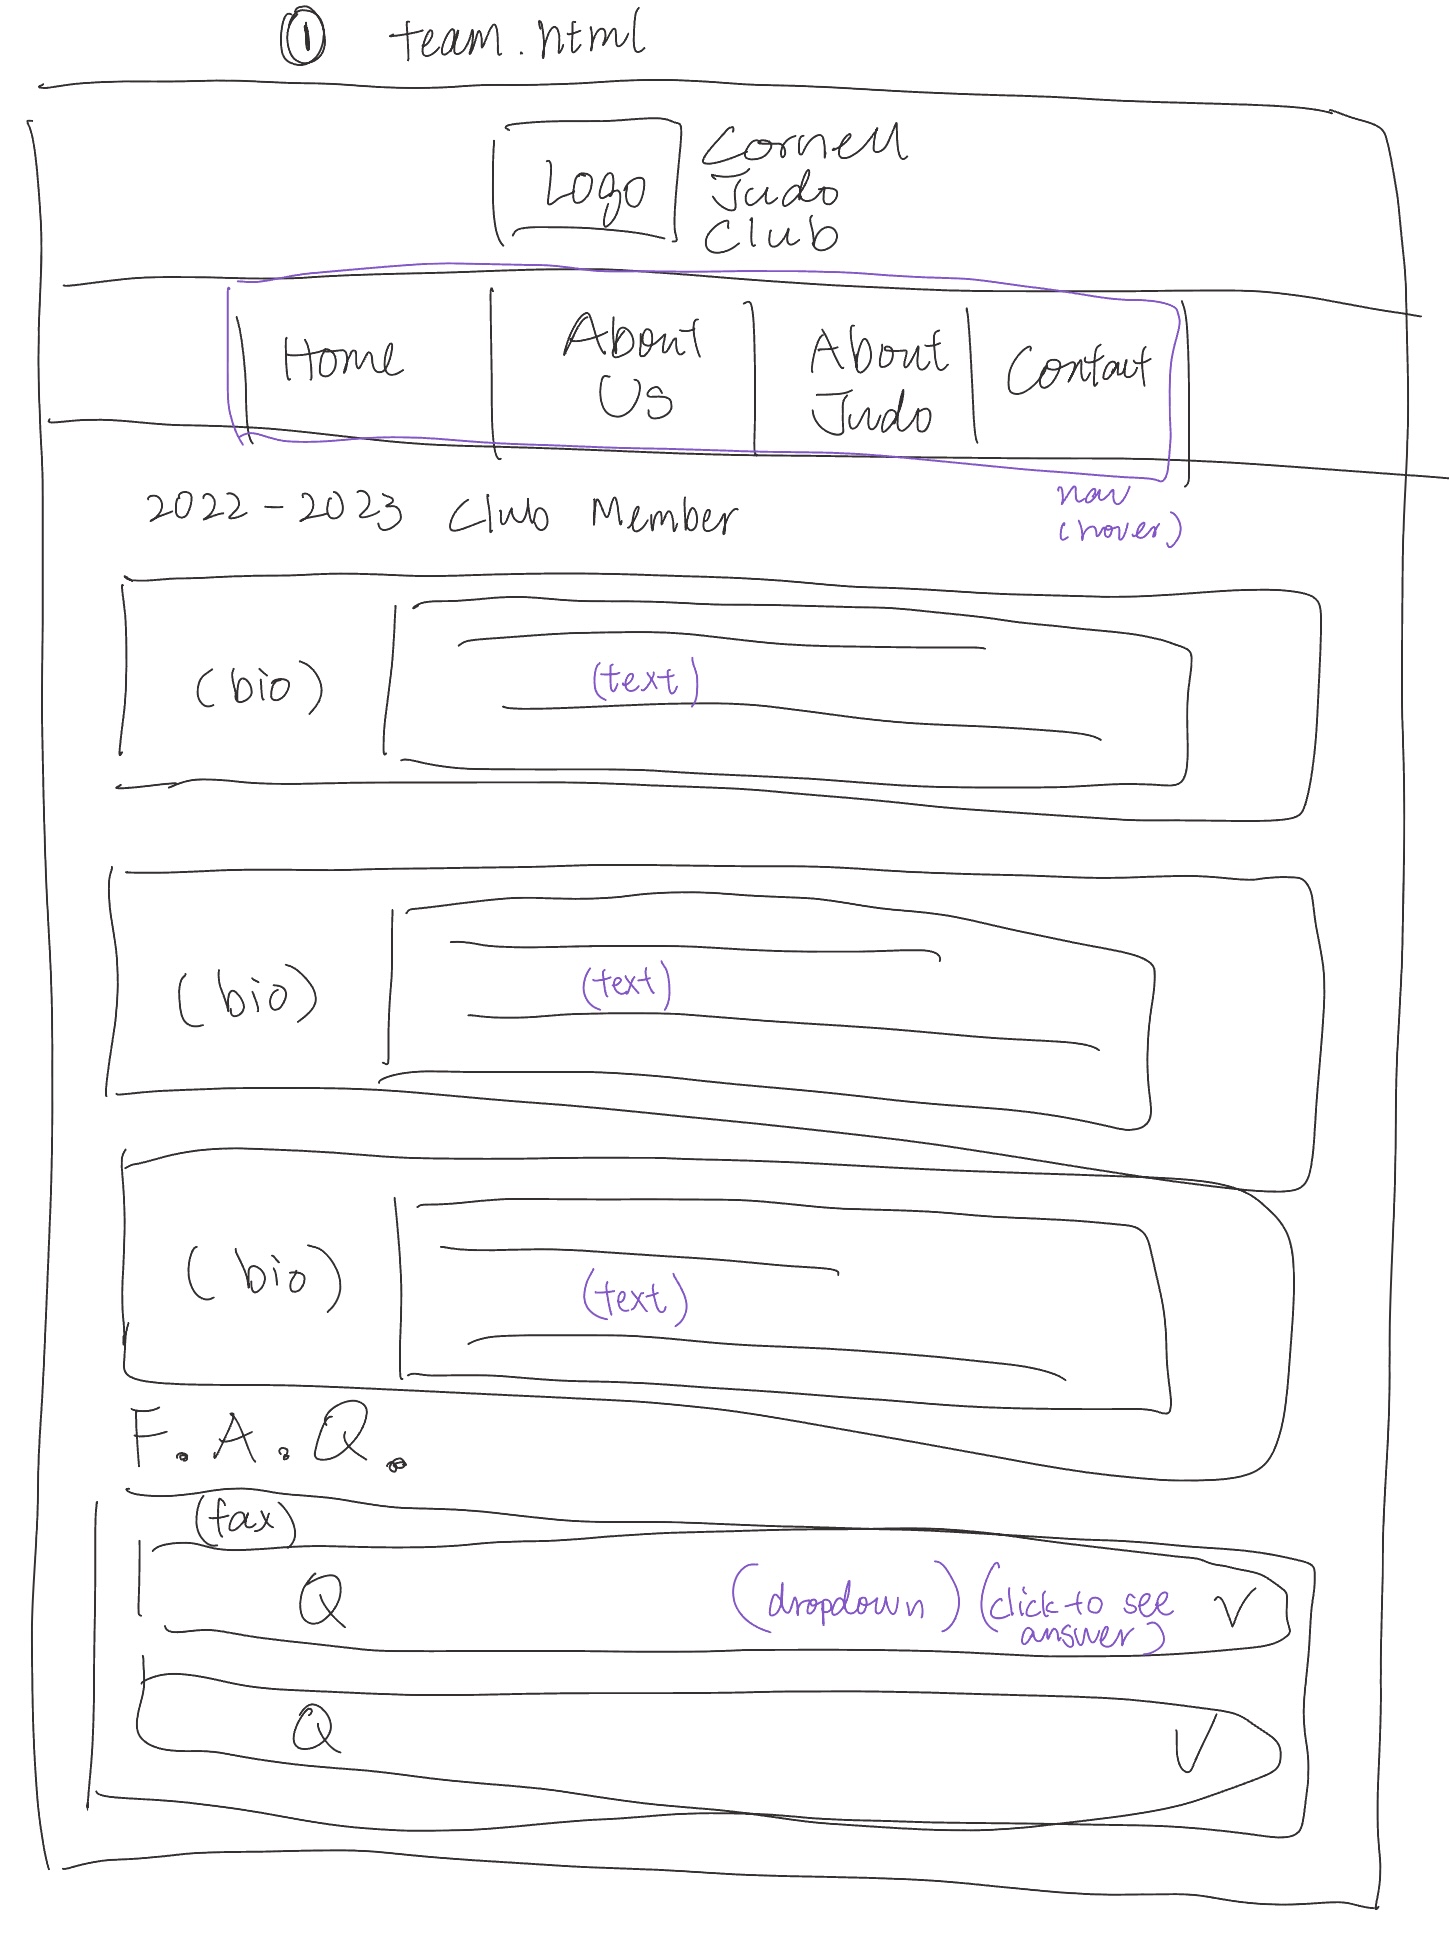 ① team.html
Logo
Cornell
Judo
Club
Home
About
Us
About
Judo
Contact
nav
(hover)
2022-2023 Club Member
(bio)
(text)
(bio)
(text)
(bio)
(text)
F.A.Q.
(fax)
Q (dropdown) (click to see
answer)
Q